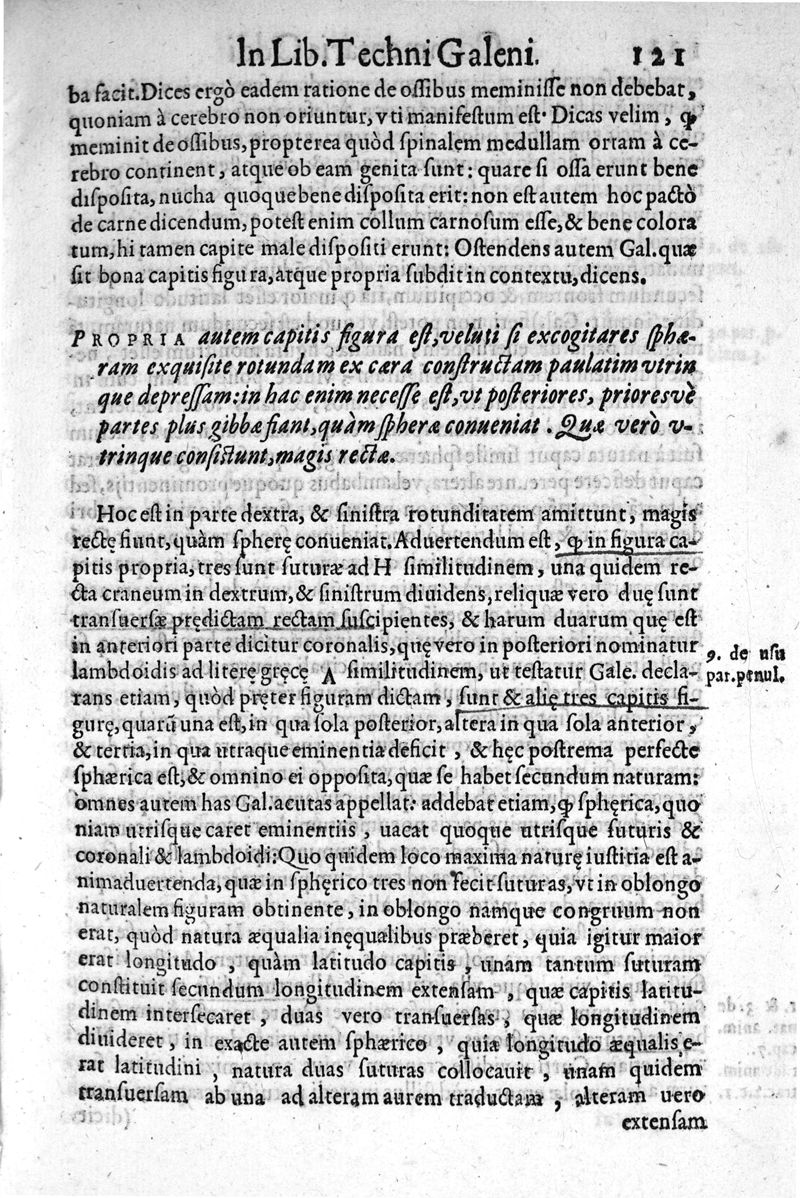 In Lib. Techni Galeni. 121
ba facit. Dices ergò eadem ratione de ossibus meminisse non debebat,
quoniam à cerebro non oriuntur, vti manifestum est· Dicas velim, ꝙ
meminit de ossibus, propterea quòd spinalem medullam ortam à ce-
rebro continent, atque ob eam genita sunt: quare si ossa erunt bene
disposita, nucha quoque bene disposita erit: non est autem hoc pactò
de carne dicendum, potest enim collum carnosum esse, & bene colora
tum, hi tamen capite male dispositi erunt: Ostendens autem Gal. quæ
sit bona capitis figura, atque propria subdit in contextu, dicens.
PROPRIA autem capitis figura est, veluti si excogitares sphæ-
ram exquisite rotundam ex cæra constructam paulatim vtrin
que depressam: in hac enim necesse est, vt posteriores, prioresvè
partes plus gibbæ fiant, quàm spheræ conueniat. Quæ verò v-
trinque consistunt, magis rectæ.
Hoc est in parte dextra, & sinistra rotunditatem amittunt, magis
rectę fiunt, quàm spherę conueniat. Aduertendum est, ꝙ in figura ca-
pitis propria, tres sunt suturæ ad H similitudinem, una quidem re-
cta craneum in dextrum, & sinistrum diuidens, reliquæ vero duę sunt
transuersæ prędictam rectam suscipientes, & harum duarum quę est
in anteriori parte dicitur coronalis, quę vero in posteriori nominatur
lambdoidis ad literę gręcę Λ similitudinem, ut testatur Gale. decla-
rans etiam, quòd pręter figuram dictam, sunt & alię tres capitis fi-
gurę, quarũ una est, in qua sola posterior, altera in qua sola anterior,
& tertia, in qua utraque eminentia deficit, & hęc postrema perfecte
sphærica est, & omnino ei opposita, quæ se habet secundum naturam:
omnes autem has Gal. acutas appellat: addebat etiam, ꝙ sphęrica, quo
niam utrisque caret eminentiis, uacat quoque utrisque suturis &
coronali & lambdoidi: Quo quidem loco maxima naturę iustitia est a-
nimaduertenda, quæ in sphęrico tres non fecit suturas, vt in oblongo
naturalem figuram obtinente, in oblongo namque congruum non
erat, quòd natura æqualia inęqualibus præberet, quia igitur maior
erat longitudo, quàm latitudo capitis, unam tantum suturam
constituit secundum longitudinem extensam, quæ capitis latitu-
dinem intersecaret, duas vero transuersas, quæ longitudinem
diuideret, in exacte autem sphærico, quia longitudo æqualis e-
rat latitudini, natura duas suturas collocauit, unam quidem
transuersam ab una ad alteram aurem traductam, alteram uero
extensam
9. de usu
par. penul.